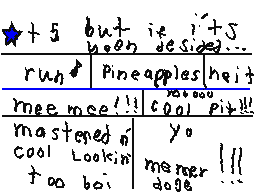 + 5 but ie it's
been desided...
run pineapples hait
mee mee!!! cool pit!!!
mastered n
cool Lookin
too boi
yo
memer
doge !!!